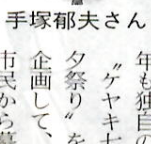 手塚郁夫さん
年も独自の
〝ケヤキ
夕祭り〟を
企画して、
市民から募